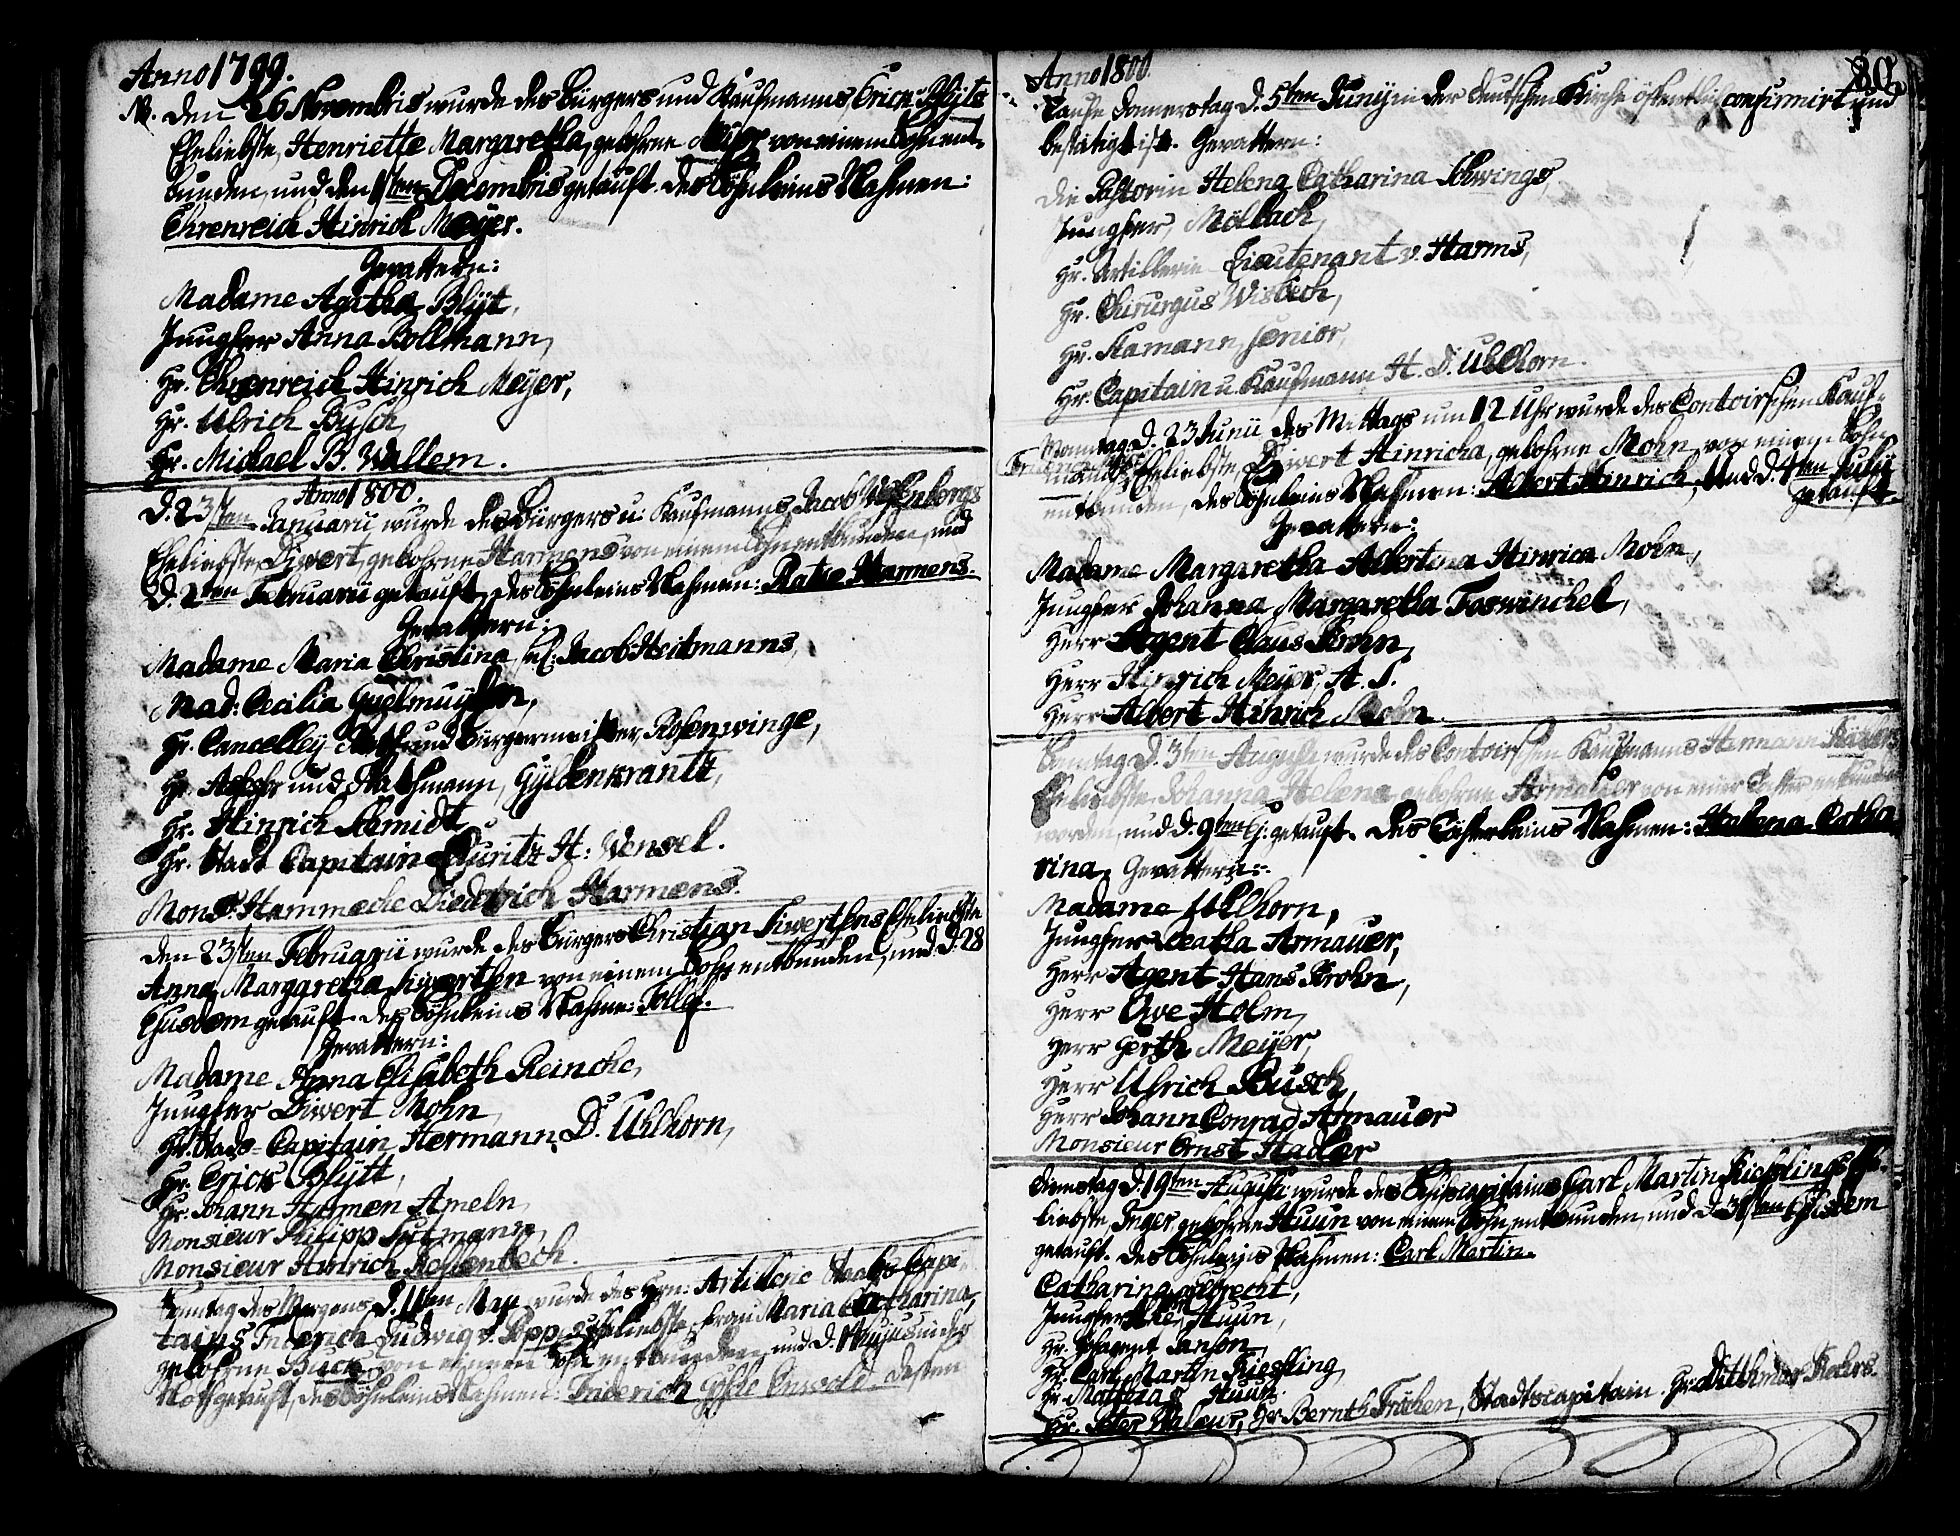 Anno 1799.
NB. den 26 Novembris wurde des Bürgers und Kaufmanns, Erick Blÿts
Eheliebste, Henriette Margaretha, gebohrne von einem Sohn ent-
bunden, und den 1sten Decembris getauft. Des Söhnleins Nahmen:
Ehrenreich Hinrich Meÿer.
Gevattern:
Madame Agatha Blÿt,
Jungfer Anna Bollmann,
Hr. Ehrenreich Hinrich Meÿer,
Hr. Ulrich Busch,
Hr. Michael B. Wallem.
Anno 1800.
D. 23sten Januarii wurde des Bürgers u: Kaufmanns, Jacob
Eheliebste, Diwert, gebohrne Harmens von einem Sohn entbunden, und
D. 2ten Februarii getauft, des Söhnleins Nahmen: Ratke Harmens.
Gevattern:
Madame Maria Christina, sel: Jacob Heitmanns,
Mad: Cecilia
Hr. Cancelleÿ Rath und Bürgermeister, Rosenwinge,
Hr. und Rathmann, Gÿldenkrantz,
Hr. Hinrich Schmidt,
Hr. Stadt Capitain H: Wensel.
Monsr. Hammecke Diedrich Harmens.
den 23sten Februarii wurde des Bürgers Christian Siwertsens Eheliebste
Anna Margaretha Siwertsen von einem Sohn entbunden, und D. 28
Ejusdem getauft. des Söhnleins Nahme:
Gevattern:
Madame Anna Elisabeth Reincke,
Jungfer Diwert Mohn,
Hr. Stads-Capitain Hermann D. Uhlhorn,
Hr. Erick Blÿtt,
Hr. Johann Harmen Ameln,
Monsieur Philipp Sutmann,
Monsieur Hinrich
Sonntag des Morgens D. 11ten Maÿ, wurde des Hrn: Artillerie Staabs Capi-
tains Friderich Ludwig v. Eheliebste, Frau Maria Catharina,
gebohrne Buck, von einem Sohn entbunden, und D. Hujus in der
Noth getauft, des Söhnleins Nahmen: Friderich Dessen
80
Anno 1800.
Taufe Donnerstag D. 5ten Junÿ in der deutschen Kirche öffentlich confirmirt und
bestätigt ist. Gevattern:
Die Pastorin Helena Catharina Schwings,
Jungfer, Mölbach,
Hr. Artillerie Lieutenant v. Harms,
Hr. Chirurgus Wisbech,
Hr. Hamann, senior,
Hr. Capitain u. Kaufmann H. D. Uhlhorn.
Montag D. 23 Junii des Mittags um 12 Uhr wurde des Contoirschen Kauf-
manns, Eheliebste, Diwert Hinricha, gebohrne Mohn, von einem Sohn
entbunden, des Söhnleins Nahmen: Albert Hinrich, und D. 4ten Julii
getauft.
Gevattern:
Madame Margaretha Albertina Hinrica Mohn,
Jungfer Johanna Margaretha Foswinckel,
Herr Agent Claus Krohn,
Herr Hinrich Meÿer, A. S.
Herr Albert Hinrich Mohn.
Sonntag D. 3ten Augusti wurde des Contoirschen Kaufmanns Hermann
Eheliebste, Johanna Helena, gebohrne Armauer von einer Tochter entbunden
worden, und D. 9ten Ej. getauft. Des Töchterleins Nahmen: Helena Catha
rina. Gevattern:
Madame Uhlhorn,
Jungfer Armauer,
Herr Agent Hans Krohn,
Herr Owe Holm,
Herr Gerth Meÿer,
Herr Ulrich Busch,
Herr Johann Conrad Armauer
Monsieur Ernst Hadler
Dienstag D. 19ten Augusti wurde des Schifscapitains, Carl Martin Kiesslings Ehe-
liebste, Inger gebohrne Huun von einem Sohn entbunden, und D. Ejusdem
getauft. Des Söhnleins Nahmen: Carl Martin.
Catharina
Jungfer Huun,
Hr. Janson,
Hr. Carl Martin Kiessling
Hr. Mathias Huun.
Hr. Peter Hr. Bernth Stadtscapitain. Hr. Dittmar